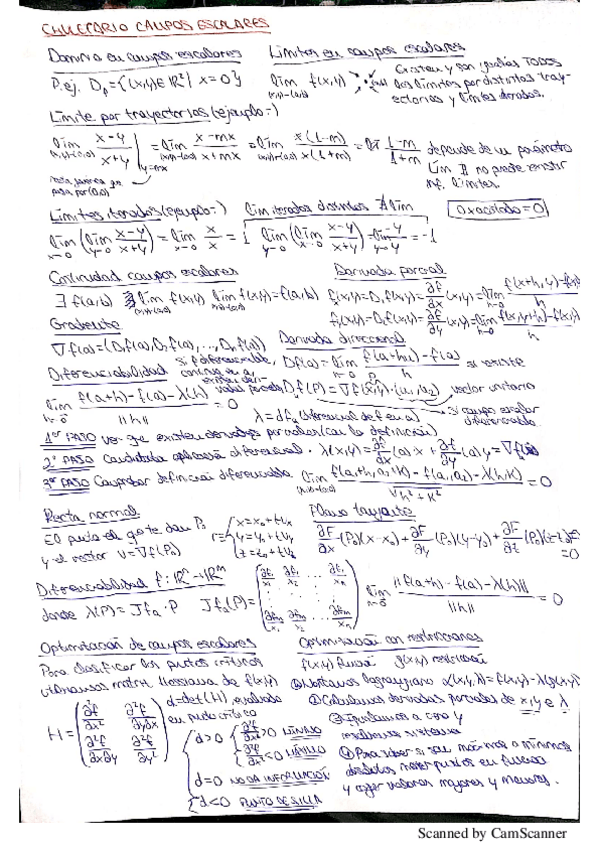 CHULETARIO CAMPOS ESCALARES
Dominio en campos escalares
P.ej. D_f={(x,y)∈ℝ²| x=0}
Límites en campos escalares
lim f(x,y)
(x,y)→(a,b)
Existen y son iguales TODOS
los límites por distintas tray-
ectorias y límites iterados.
Límite por trayectorias (ejemplo→)
lim x-y/x+y |y=mx = lim x-mx/x+mx = lim x(1-m)/x(1+m) = 1-m/1+m depende de un parámetro
pasa por (0,0)
no puede existir
inf. límites.
Límites iterados (ejemplo→) lim iterados distintos ∄ lim
0xacotado=0
lim x→0 (lim y→0 x-y/x+y) = lim x→0 x/x = 1 lim y→0 (lim x→0 x-y/x+y) = lim y→0 -y/y = -1
Continuidad campos escalares
∃ f(a,b) ∃ lim f(x,y) lim f(x,y)=f(a,b)
Derivada parcial
f_x(x,y)=D₁f(x,y)=∂f/∂x (x,y)=lim h→0 f(x+h,y)-f(x,y)/h
f_y(x,y)=D₂f(x,y)=∂f/∂y (x,y)=lim h→0 f(x,y+h)-f(x,y)/h
Gradiente
∇f(a)=(D₁f(a),D₂f(a),...,Dₙf(a))
Derivada direccional
Df(a)=lim h→0 f(a+hu)-f(a)/h si existe
D_u f(P)=∇f(x,y)·(u₁,u₂) vector unitario
si campo escalar
diferenciable.
Diferenciabilidad
si f diferenciable,
continua en a,
lim h→0 f(a+h)-f(a)-λ(h)/||h|| = 0
λ=df_a (diferencial de f en a)
1er PASO ver que existen derivadas parciales (con la definición)
2º PASO Candidata aplicación diferencial. λ(x,y)=∂f/∂x (a)x+∂f/∂y (a)y=∇f(a)
3er PASO Comprobar definición diferenciable. lim f(a₁+h,a₂+k)-f(a₁,a₂)-λ(h,k)/√h²+k² = 0
Recta normal
El punto el que te dan P₀
y el vector v=∇f(P₀)
r={x=x₀+tv₁
y=y₀+tv₂
z=z₀+tv₃
Plano tangente
∂F/∂x (P₀)(x-x₀)+∂F/∂y (P₀)(y-y₀)+∂F/∂z (P₀)(z-z₀)
=0
Diferenciabilidad f:ℝⁿ→ℝᵐ
donde λ(P)=Jf_a·P Jf_a(P)=
lim h→0 ||f(a+h)-f(a)-λ(h)||/||h|| = 0
Optimización de campos escalares
Para clasificar los puntos críticos
utilizamos matriz Hessiana de f(x,y)
H=(∂²f/∂x² ∂²f/∂y∂x
∂²f/∂x∂y ∂²f/∂y²)
d=det(H), evaluada
en punto crítico
d>0 {∂²f/∂x²>0 MÍNIMO
∂²f/∂x²<0 MÁXIMO
d=0 NO DA INFORMACIÓN
d<0 PUNTO DE SILLA
Optimización con restricciones
f(x,y) función g(x,y) restricción
① Montamos lagrangiano L(x,y,λ)=f(x,y)-λg(x,y)
② Calculamos derivadas parciales de x,y e λ
③ Igualamos a cero y
resolvemos sistema
④ Para saber si son máximos o mínimos
meter puntos en función
y coger valores mayores y menores.
Scanned by CamScanner